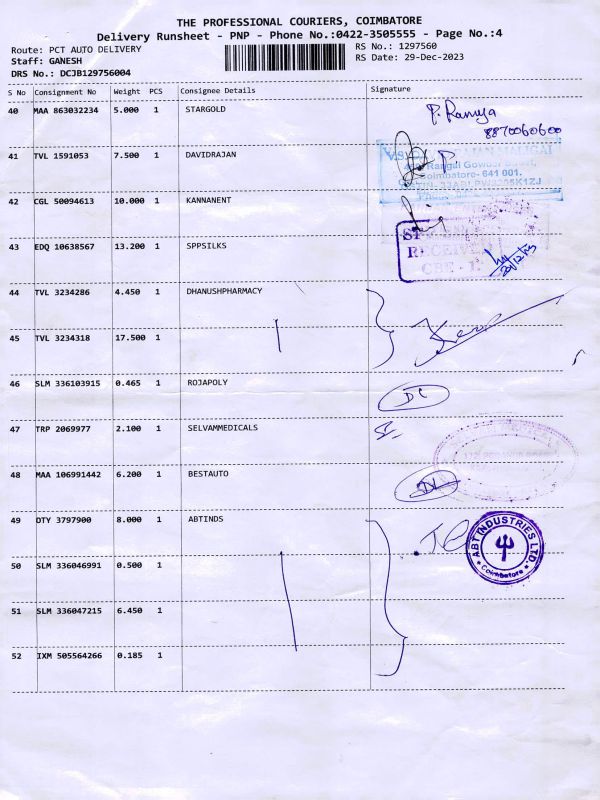 THE PROFESSIONAL COURIERS, COIMBATORE
Delivery Runsheet - PNP - Phone No.:0422-3505555 - Page No.:4
Route: PCT AUTO DELIVERY
RS No.: 1297560
Staff: GANESH
RS Date: 29-Dec-2023
DRS No.: DCJB129756004
S No Consignment No Weight PCS Consignee Details Signature
40 MAA 863032234 5.000 1 STARGOLD P. Ramya
8870060600
41 TVL 1591053 7.500 1 DAVIDRAJAN P.
Coimbatore- 641 001.
42 CGL 50094613 10.000 1 KANNANENT
43 EDQ 10638567 13.200 1 SPPSILKS
RECEIVED
CBE - 1
44 TVL 3234286 4.450 1 DHANUSHPHARMACY
45 TVL 3234318 17.500 1
46 SLM 336103915 0.465 1 ROJAPOLY DC
47 TRP 2069977 2.100 1 SELVAMMEDICALS
48 MAA 106991442 6.200 1 BESTAUTO
49 DTY 3797900 8.000 1 ABTINDS
ABT INDUSTRIES LTD
Coimbatore
50 SLM 336046991 0.500 1
51 SLM 336047215 6.450 1
52 IXM 505564266 0.185 1